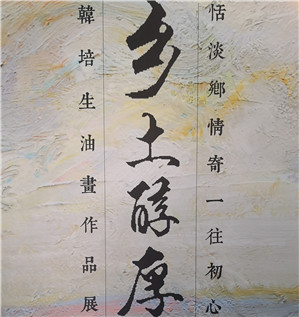 恬淡鄉情寄一往初心
乡土醇厚
韓培生油畫作品展